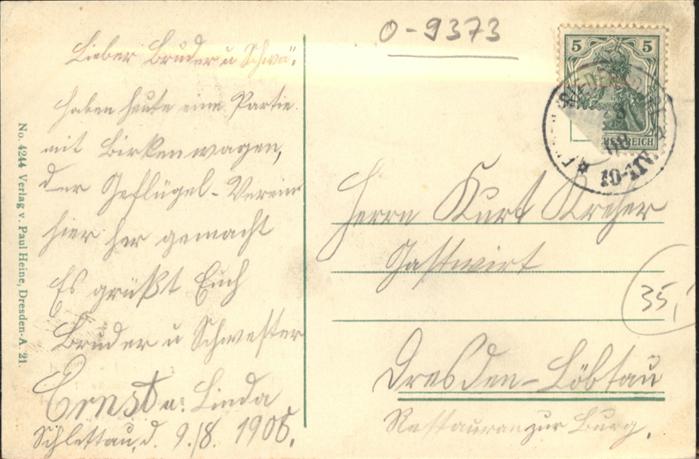 O-9373
Lieber Bruder u Schwä:
haben heute eine Partie
mit Birkenwagen,
der Geflügel-Verein
hier her gemacht
Es grüßt Euch
Bruder u Schwester
Ernst u: Linda
Schlettau, d. 9./8. 1906.
No. 4244 Verlag v. Paul Heine, Dresden-A. 21.
5 5
REICH
10-11V
Herrn Kurt Krcher
Gastwirt
35,-
Dresden-Löbtau
Restauran zur Burg.